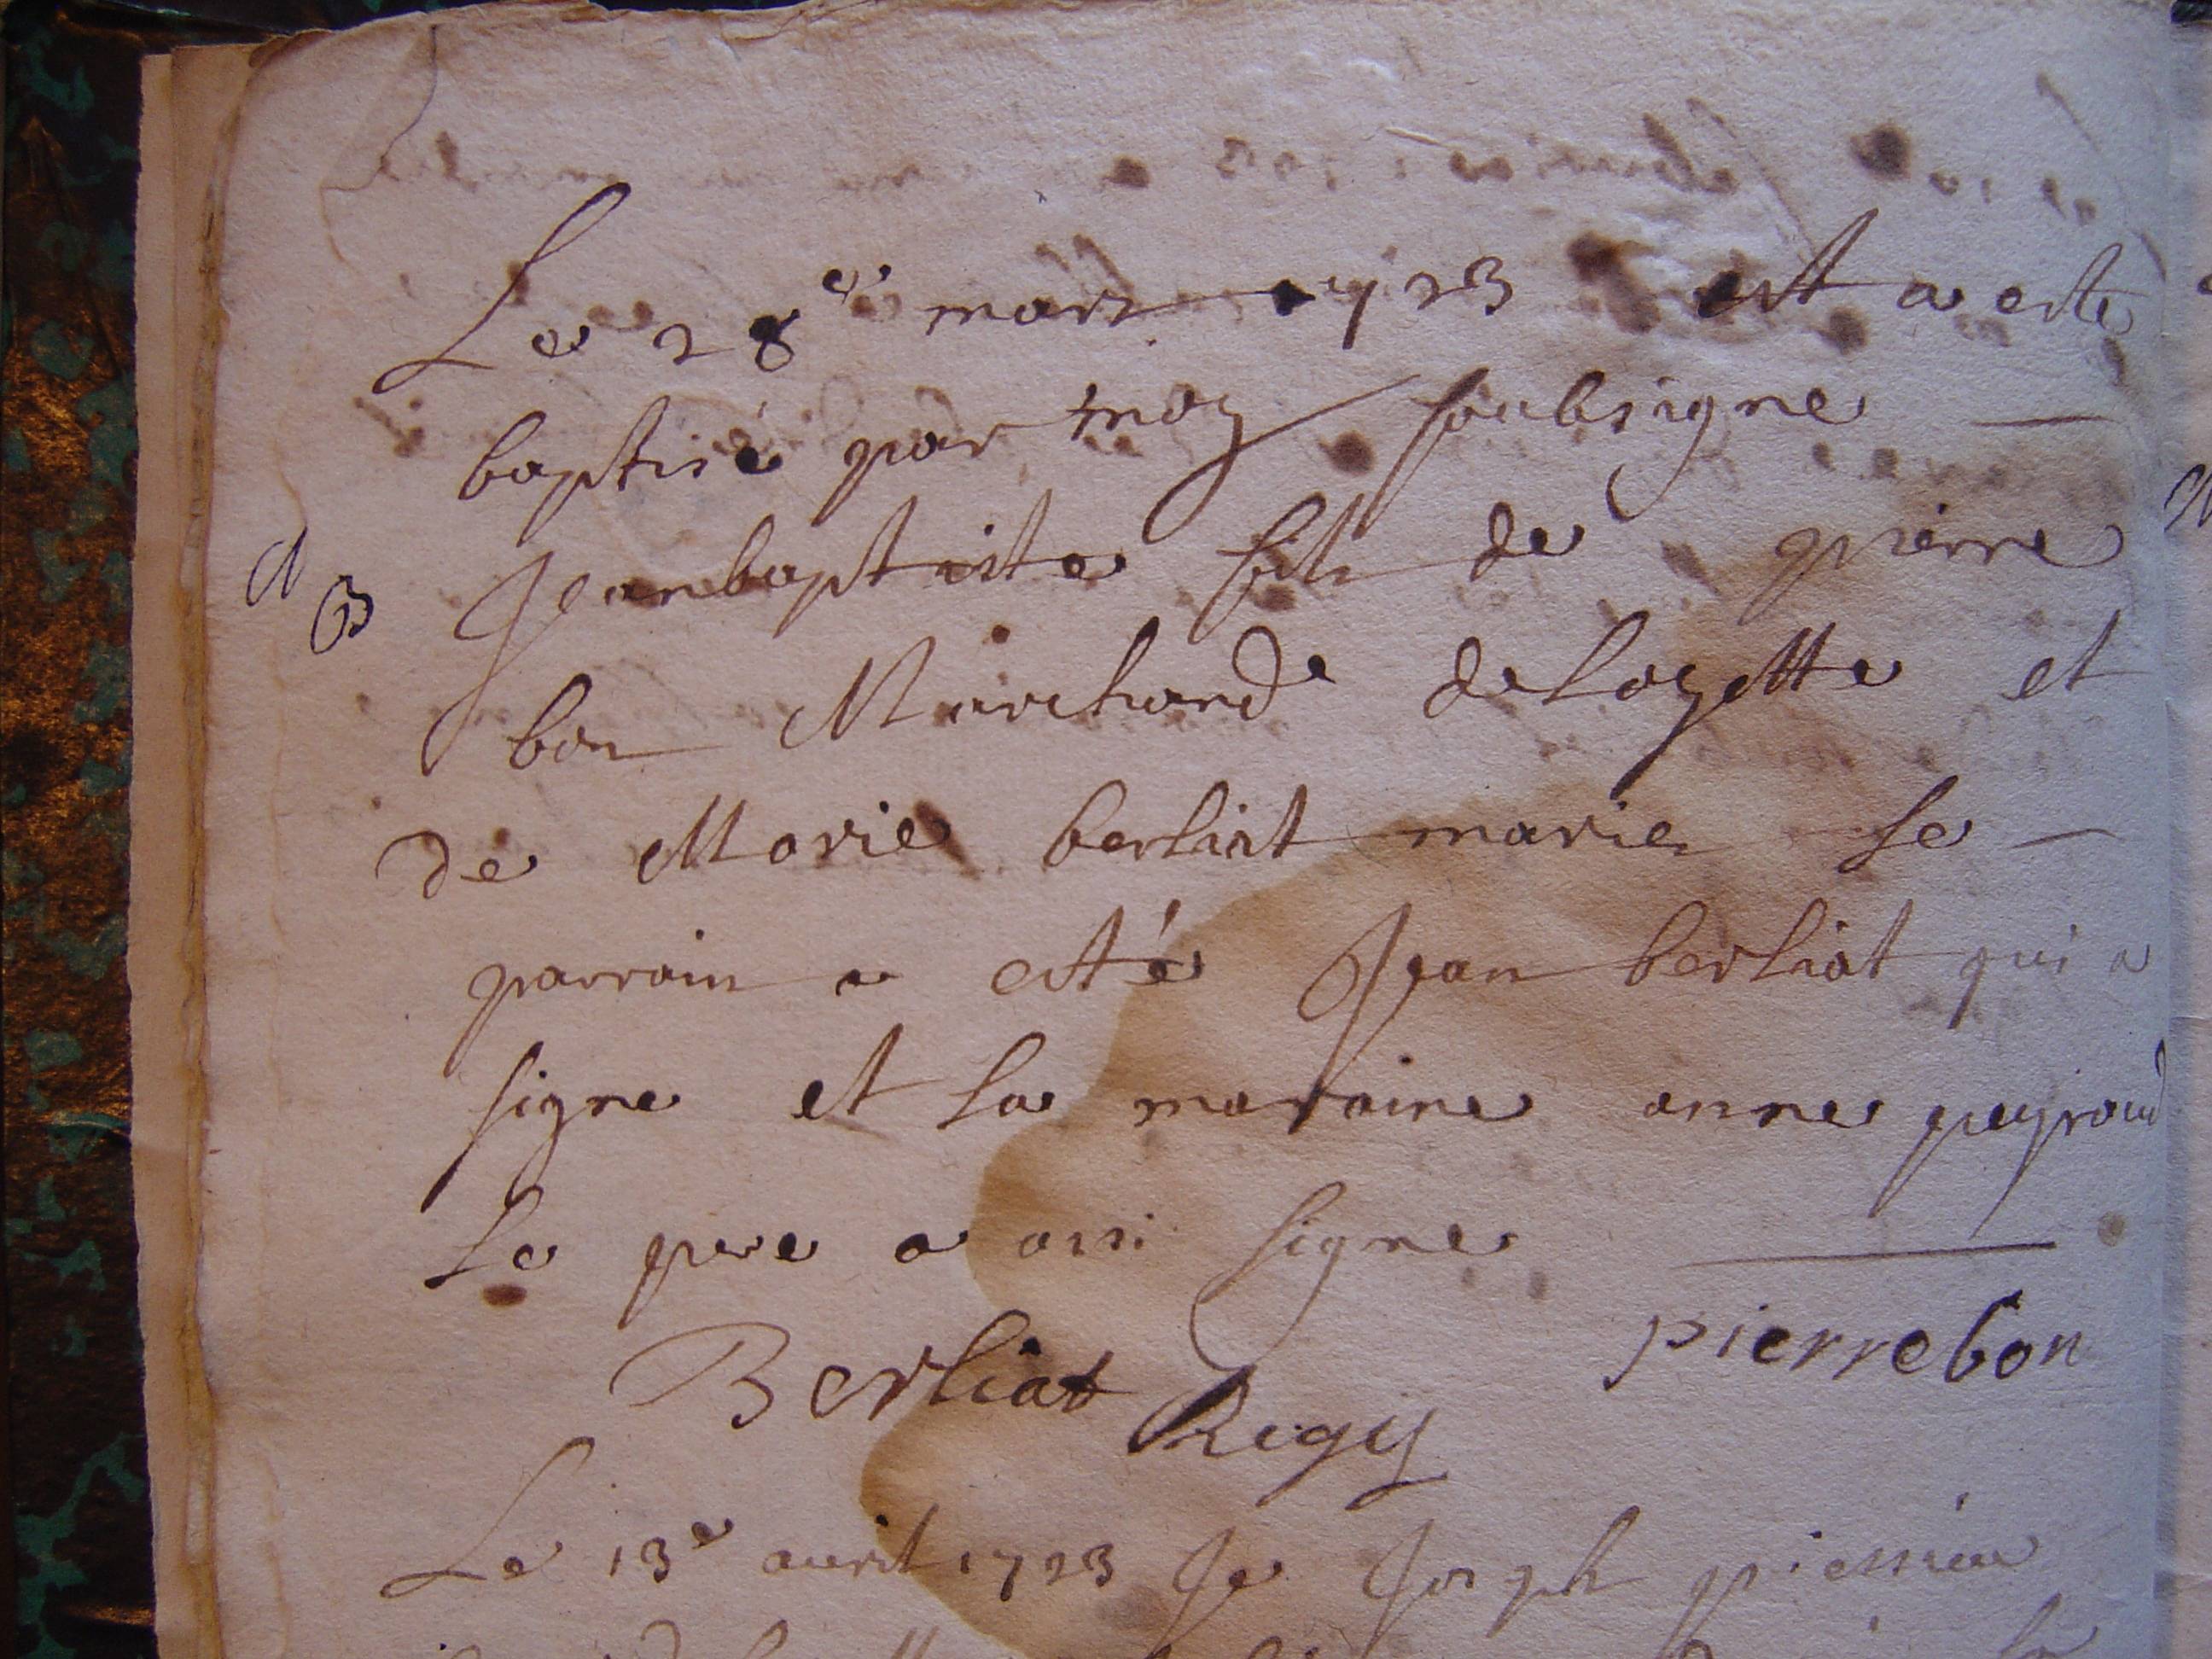 Le 28e mars 1723 est a este
baptisé par moy soubsigne
N B Jeanbaptiste fils de pierre
bon Marchand de Loyette et
de Marie berliat maries Le
parrain a esté Jean berliat qui a
signe et La maraine anne peyraud
Le pere a ossi signe
pierre bon
Berliat Regy
Le 13e auril 1723 Je Joseph